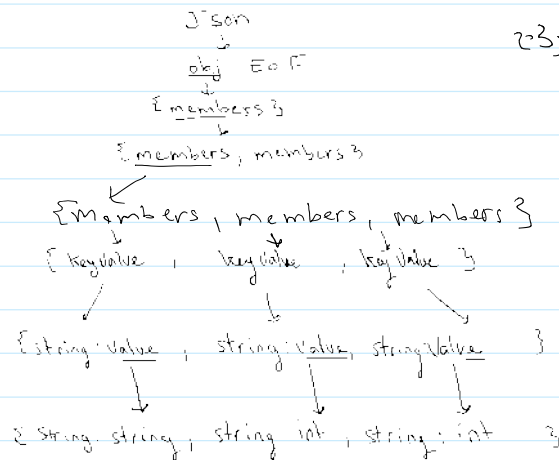 Json
obj EOF
{ members }
{ members, members }
{ members, members, members }
{ keyvalue , keyvalue , keyvalue }
{ string : value , string : value, string value }
{ string : string, string int , string : int }